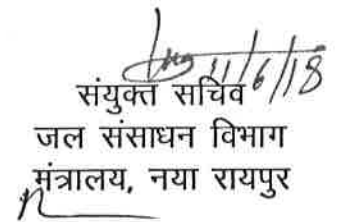 11/6/18
संयुक्त सचिव
जल संसाधन विभाग
मंत्रालय, नया रायपुर